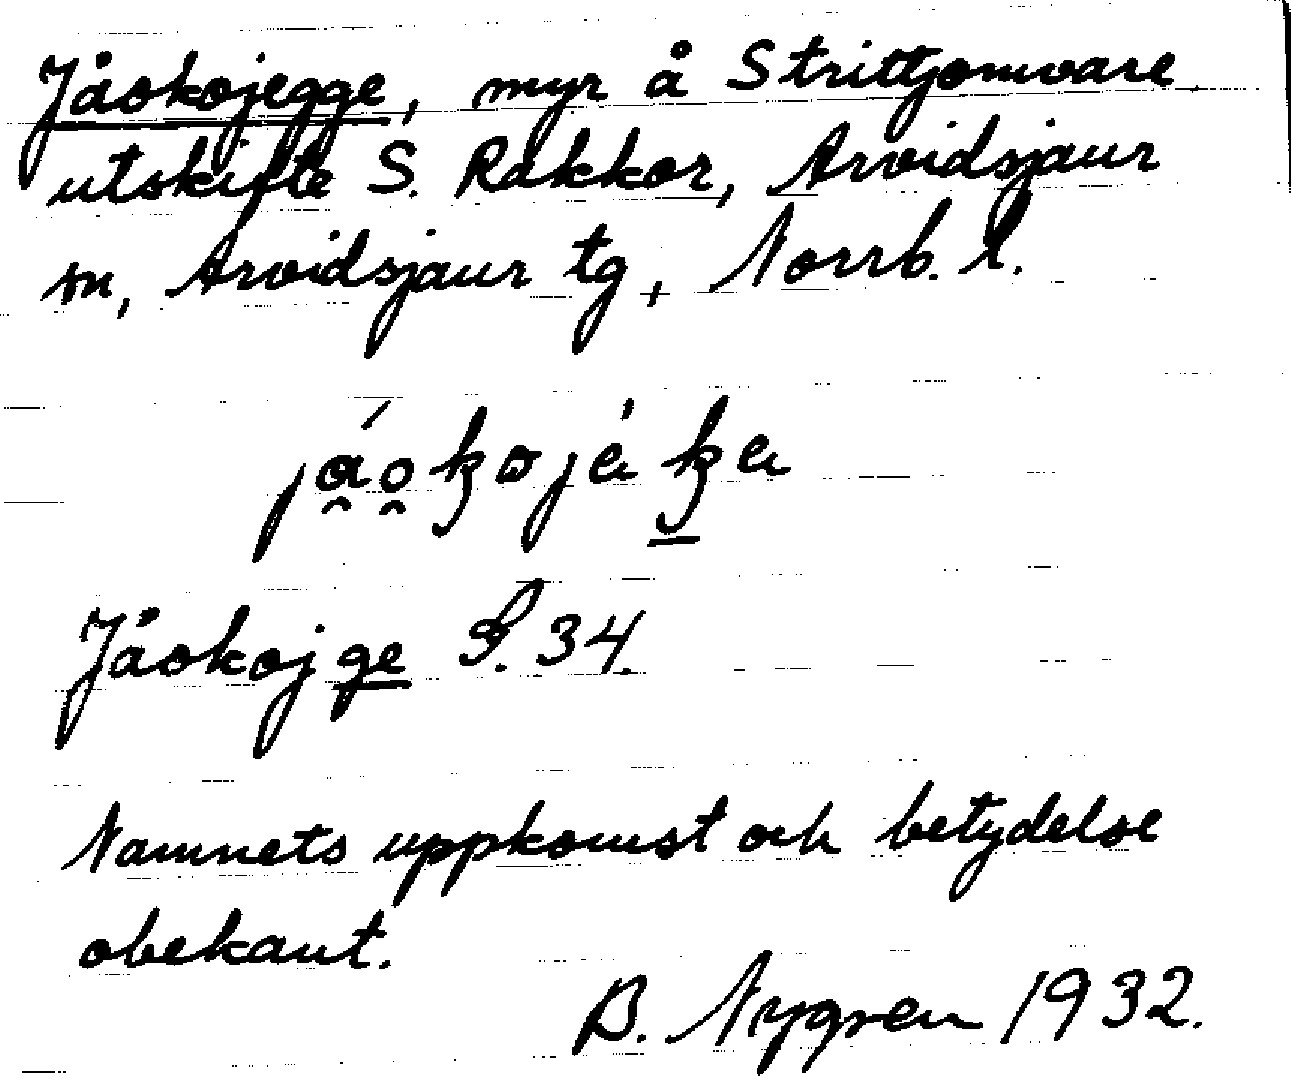 Jåokojegge, myr å Strittjomvare
utskifte S. Räkkor, Arvidsjaur
sn, Arvidsjaur tg, Norrb. l.
Jåokojge S. 34.
Namnets uppkomst och betydelse
obekant.
B. Nygren 1932.